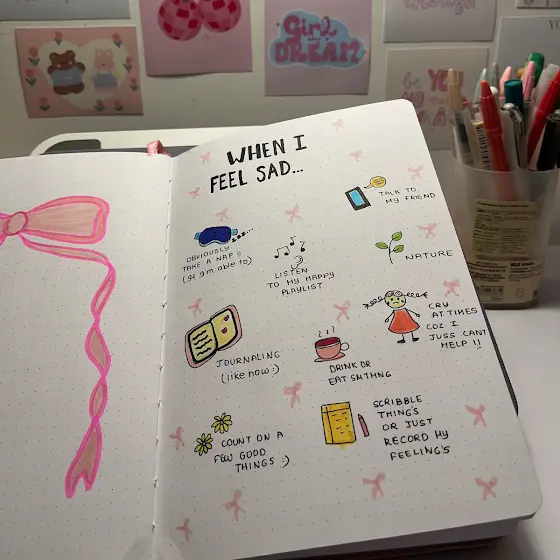 Girl
DREAM
be YOU
WHEN I
FEEL SAD...
TALK TO
MY FRIEND
OBVIOUSLY
TAKE A NAP !!
(if i'm able to)
LISTEN
TO MY HAPPY
PLAYLIST
NATURE
JOURNALING
(like now :)
DRINK OR
EAT SMTHNG
CRY
AT TIMES
COZ I
JUSS CANT
HELP !!
COUNT ON A
FEW GOOD
THINGS :)
SCRIBBLE
THING'S
OR JUST
RECORD MY
FEELING'S